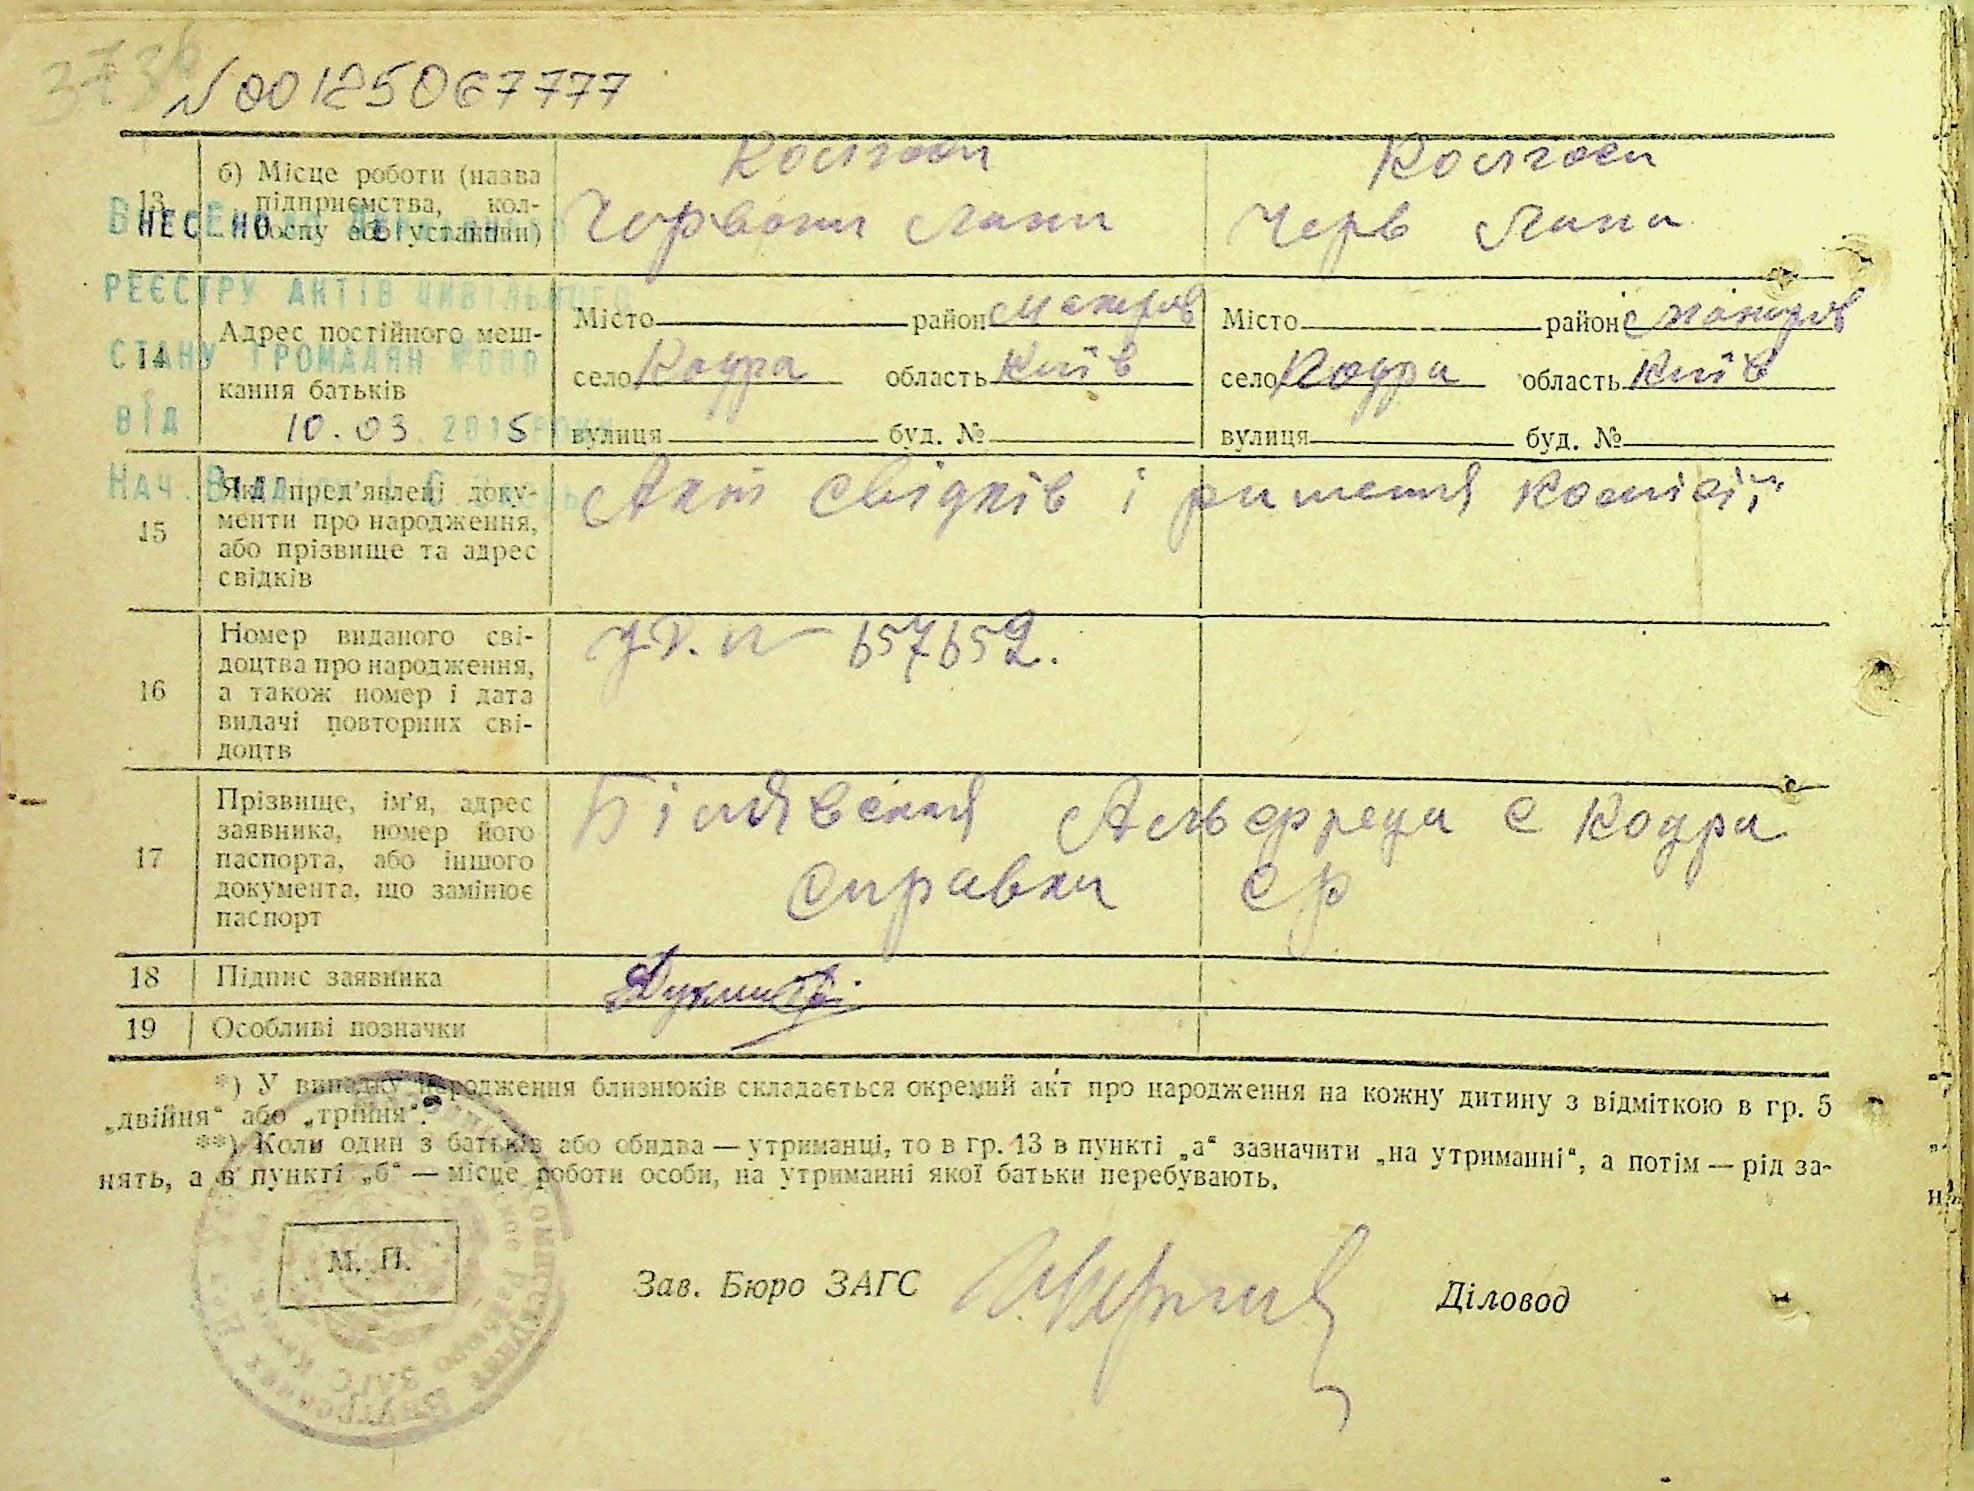 373б
N 00125067777
13
б) Місце роботи (назва
підприємства, кол-
госпу або установи)
Колгосп
Червони Лани
Колгосп
Черв Лани
ВНЕСЕНО ДО ДЕРЖАВНОГО
РЕЄСТРУ АКТІВ ЦИВІЛЬНОГО
СТАНУ ГРОМАДЯН
ВІД 10.03.2015 РОКУ
НАЧ. ВІДДІЛУ
14
Адрес постійного меш-
кання батьків
Місто район Макаров
село Кодра область Київ
вулиця буд. №
Місто район Макаров
село Кодра область Київ
вулиця буд. №
15
Які пред'явлені доку-
менти про народження,
або прізвище та адрес
свідків
Акт свідків і ришення комісії
16
Номер виданого сві-
доцтва про народження,
а також номер і дата
видачі повторних сві-
доцтв
657652.
17
Прізвище, ім'я, адрес
заявника, номер його
паспорта, або іншого
документа, що замінює
паспорт
Білявская Альфреда с Кодра
справка ср
18
Підпис заявника
19
Особливі позначки
*) У випадку народження близнюків складається окремий акт про народження на кожну дитину з відміткою в гр. 5
„двійня“ або „трійня“.
**) Коли один з батьків або обидва — утриманці, то в гр. 13 в пункті „а“ зазначити „на утриманні“, а потім — рід за-
нять, а в пункті „б“ — місце роботи особи, на утриманні якої батьки перебувають.
М. П.
Зав. Бюро ЗАГС
Діловод